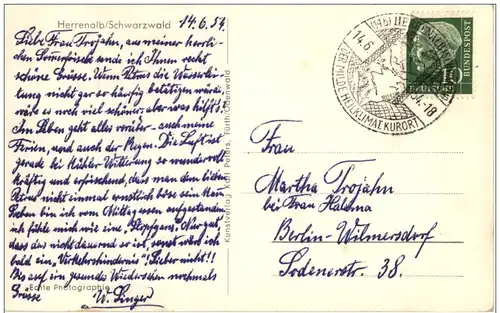 Herrenalb/Schwarzwald
14.6.54
Liebe Frau Trojahn, aus meiner herrli-
chen Sommerfrische sende ich Ihnen recht
schöne Grüsse. Wenn Petrus die Wasserlei-
tung nicht gar so häufig betätigen würde,
wäre es noch viel schöner, aber was hilft's!
Im Leben geht alles vorüber – auch meine
Ferien, und auch der Regen. Die Luft ist
gerade bei kühler Witterung so wundervoll
kräftig und erfrischend, dass man dem lieben
Petrus nicht einmal ernstlich böse sein kann
bin ich vom Mittagessen aufgestanden,
ich fühle mich wie eine "Stopfgans". Nur gut,
dass das nicht dauernd so ist, sonst würd ich
bald ein "Verkehrshindernis"! Lieber nicht!!
Bis auf ein gesundes Wiedersehen nochmals
Grüsse W. Singer
Echte Photographie
Kunstverlag Karl Peters, Fürth/Odenwald
14.6
HEILKLIMAKURORT
54-18
DEUTSCHE
BUNDESPOST
10
Frau
Martha Trojahn
bei Frau
Berlin-Wilmersdorf
Sodenerstr. 38